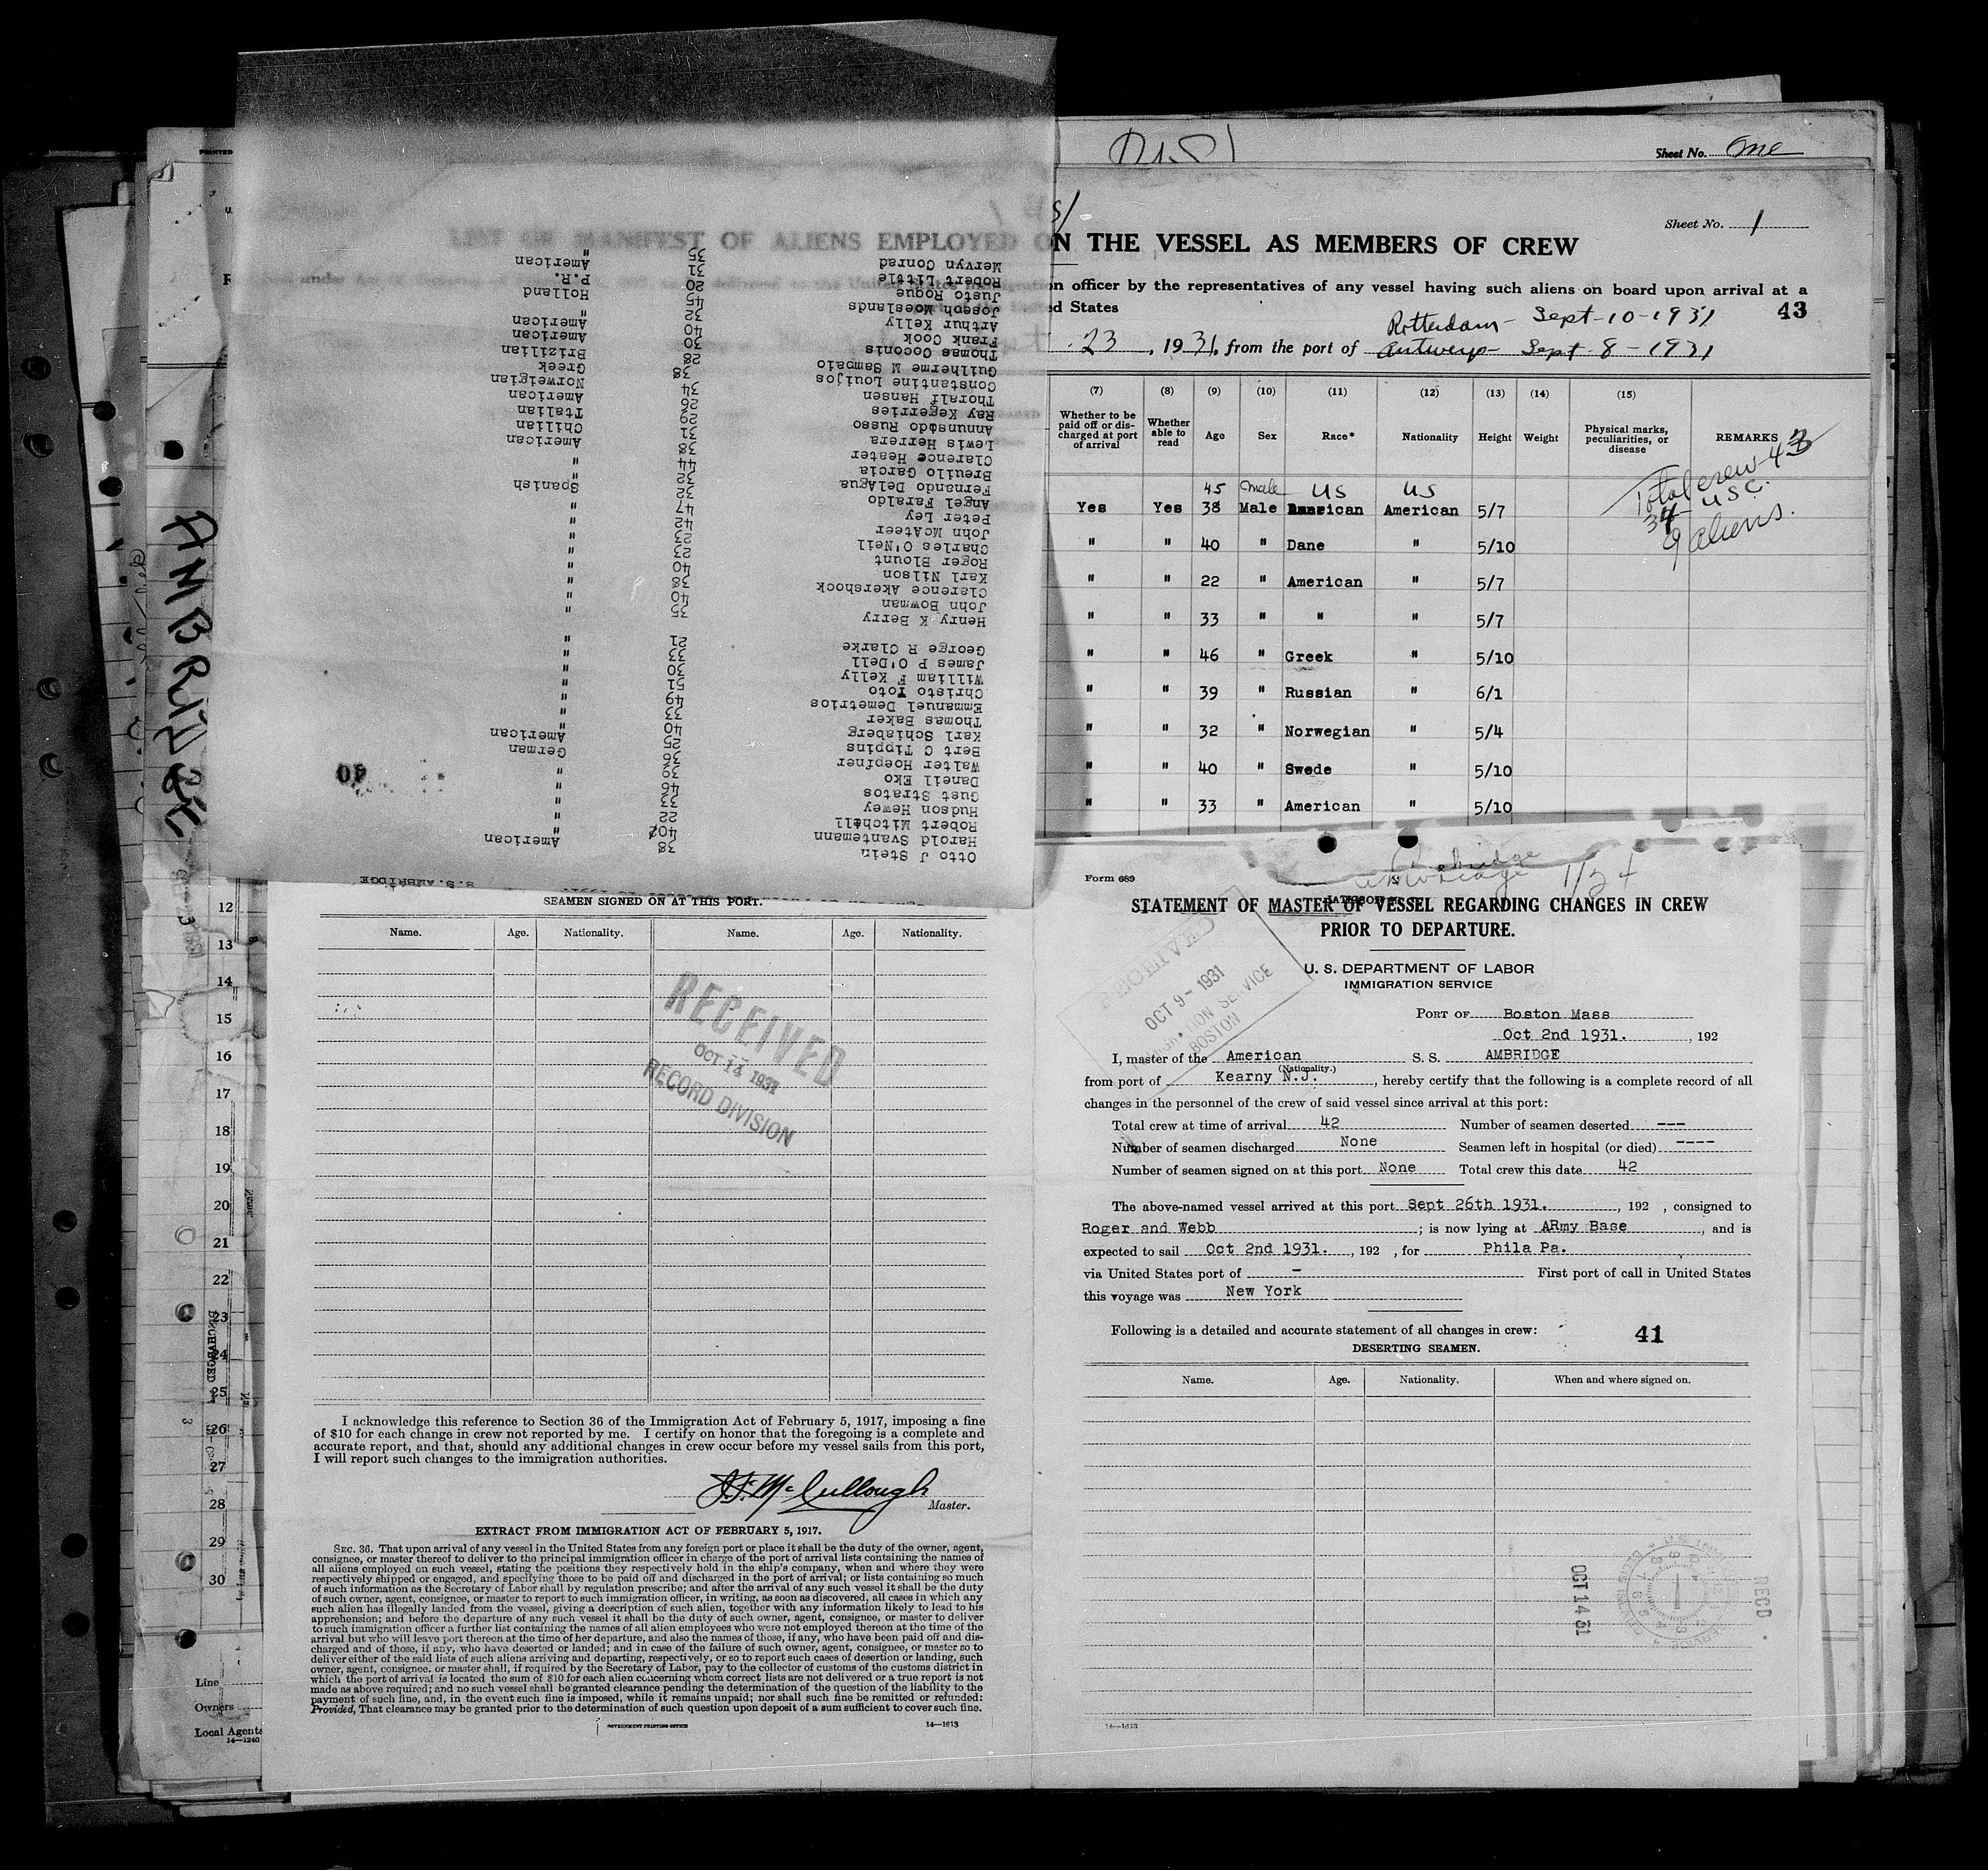 Sheet No. One
Sheet No. 1
LIST OR MANIFEST OF ALIENS EMPLOYED ON THE VESSEL AS MEMBERS OF CREW
n officer by the representatives of any vessel having such aliens on board upon arrival at a
ed States
43
Rotterdam - Sept-10-1931
23, 1931, from the port of Antwerp - Sept 8-1931
(7) (8) (9) (10) (11) (12) (13) (14) (15)
Whether to be paid off or discharged at port of arrival
Whether able to read
Age
Sex
Race*
Nationality
Height
Weight
Physical marks, peculiarities, or disease
REMARKS
Total crew 43
34 USC.
9 aliens.
45 Male US US
Yes Yes 38 Male American American 5/7
" " 40 " Dane " 5/10
" " 22 " American " 5/7
" " 33 " " " 5/7
" " 46 " Greek " 5/10
" " 39 " Russian " 6/1
" " 32 " Norwegian " 5/4
" " 40 " Swede " 5/10
" " 33 " American " 5/10
AMBRIDGE
S.S. AMBRIDGE
Otto J Stein 38 American
Harold Svantemann 40 "
Robert Mitchell 22 "
Hudson Hewey 33 "
Gust Stratos 46 "
Daneil Eko 39 "
Walter Hoepfner 36 German
Bert C Tippins 25 American
Karl Schiaberg 40 "
Thomas Baker 33 "
Emmanuel Demetrios 49 "
Christo Toto 51 "
William F Kelly 30 "
James P O'Dell 33 "
George R Clarke 21 "
Henry K Berry 35 "
John Bowman 40 "
Clarence Akershock 38 "
Karl Nilson 40 "
Roger Blount 23 "
Charles O'Neil 23 "
John McAteer 42 "
Peter Ley 47 "
Angel Faraldo 32 Spanish
Fernando DelAgua 32 "
Breuilo Garcia 44 "
Clarence Heater 38 American
Lewis Herrera 31 Chilian
Annunsdo Russo 29 Italian
Ray Kegerries 26 American
Thoralf Hansen 34 Norweigian
Constantine Louijos 38 Greek
Guilherme M Sampaio 28 Brizilian
Thomas Coconis 30 American
Frank Cook 40 American
Arthur Kelly 32 "
Joseph Moeslands 45 Holland
Justo Roque 20 P.R.
Robert Little 31 American
Mervyn Conrad 35 "
40
12
13
14
15
16
17
18
19
20
21
22
23
24
25
26
27
28
29
30
Line
Owners
Local Agents
14—1240
SEAMEN SIGNED ON AT THIS PORT.
Name. Age. Nationality. Name. Age. Nationality.
RECEIVED
OCT 14 1931
RECORD DIVISION
I acknowledge this reference to Section 36 of the Immigration Act of February 5, 1917, imposing a fine
of $10 for each change in crew not reported by me. I certify on honor that the foregoing is a complete and
accurate report, and that, should any additional changes in crew occur before my vessel sails from this port,
I will report such changes to the immigration authorities.
J.F. McCullough
Master.
EXTRACT FROM IMMIGRATION ACT OF FEBRUARY 5, 1917.
SEC. 36. That upon arrival of any vessel in the United States from any foreign port or place it shall be the duty of the owner, agent,
consignee, or master thereof to deliver to the principal immigration officer in charge of the port of arrival lists containing the names of
all aliens employed on such vessel, stating the positions they respectively hold in the ship's company, when and where they were
respectively shipped or engaged, and specifying those to be paid off and discharged in the port of arrival; or lists containing so much
of such information as the Secretary of Labor shall by regulation prescribe; and after the arrival of any such vessel it shall be the duty
of such owner, agent, consignee, or master to report to such immigration officer, in writing, as soon as discovered, all cases in which any
such alien has illegally landed from the vessel, giving a description of such alien, together with any information likely to lead to his
apprehension; and before the departure of any such vessel it shall be the duty of such owner, agent, consignee, or master to deliver
to such immigration officer a further list containing the names of all alien employees who were not employed thereon at the time of the
arrival but who will leave port thereon at the time of her departure, and also the names of those, if any, who have been paid off and dis-
charged and of those, if any, who have deserted or landed; and in case of the failure of such owner, agent, consignee, or master so to
deliver either of the said lists of such aliens arriving and departing, respectively, or so to report such cases of desertion or landing, such
owner, agent, consignee, or master shall, if required by the Secretary of Labor, pay to the collector of customs of the customs district in
which the port of arrival is located the sum of $10 for each alien concerning whom correct lists are not delivered or a true report is not
made as above required; and no such vessel shall be granted clearance pending the determination of the question of the liability to the
payment of such fine, and, in the event such fine is imposed, while it remains unpaid; nor shall such fine be remitted or refunded:
Provided, That clearance may be granted prior to the determination of such question upon deposit of a sum sufficient to cover such fine.
GOVERNMENT PRINTING OFFICE
14—1613
Form 689
Ambridge 1/34
STATEMENT OF MASTER OF VESSEL REGARDING CHANGES IN CREW
PRIOR TO DEPARTURE.
U. S. DEPARTMENT OF LABOR
IMMIGRATION SERVICE
RECEIVED
OCT 9- 1931
BOSTON
PORT OF Boston Mass
Oct 2nd 1931. , 192
I, master of the American S. S. AMBRIDGE
(Nationality.)
from port of Kearny N.J. , hereby certify that the following is a complete record of all
changes in the personnel of the crew of said vessel since arrival at this port:
Total crew at time of arrival 42 Number of seamen deserted ---
Number of seamen discharged None Seamen left in hospital (or died) ----
Number of seamen signed on at this port None Total crew this date 42
The above-named vessel arrived at this port Sept 26th 1931. , 192 , consigned to
Roger and Webb ; is now lying at ARmy Base , and is
expected to sail Oct 2nd 1931. , 192 , for Phila Pa.
via United States port of - First port of call in United States
this voyage was New York
Following is a detailed and accurate statement of all changes in crew:
41
DESERTING SEAMEN.
Name. Age. Nationality. When and where signed on.
OCT 14 31
RECD
14—1613